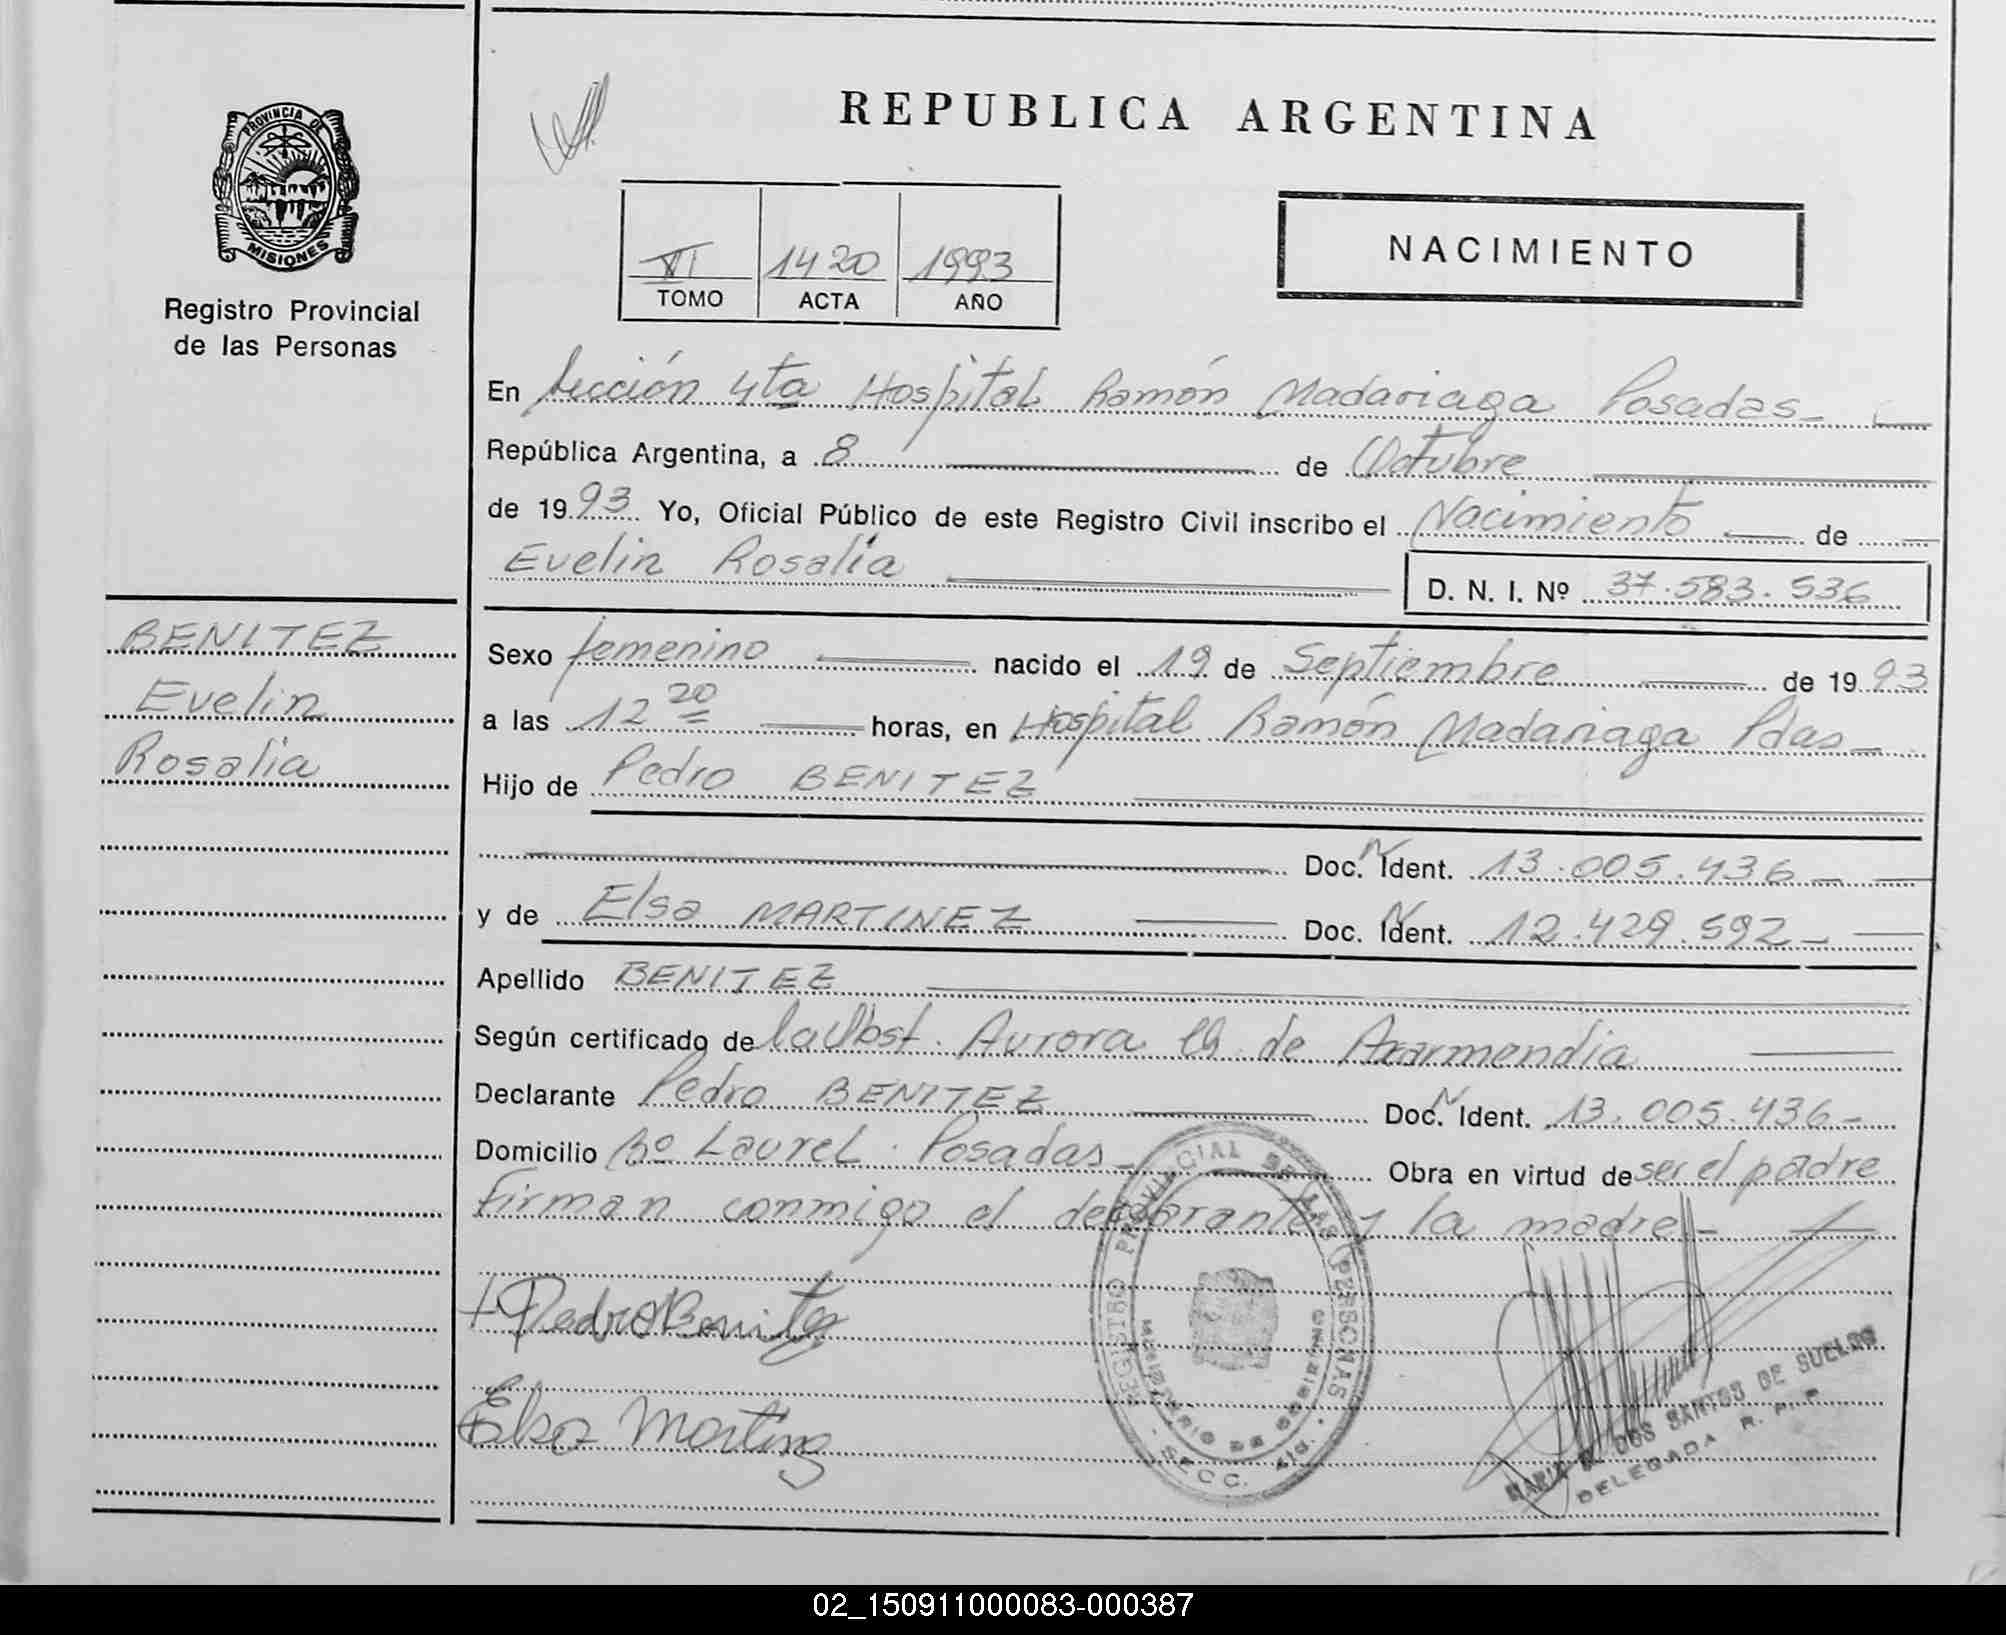 REPUBLICA ARGENTINA
PROVINCIA DE
MISIONES
Registro Provincial
de las Personas
VI 1420 1993
TOMO ACTA AÑO
NACIMIENTO
En Sección 4ta Hospital Ramón Madariaga Posadas
República Argentina, a 8 de Octubre
de 1993 Yo, Oficial Público de este Registro Civil inscribo el Nacimiento de
Evelin Rosalía
D. N. I. Nº 37.583.536
BENITEZ
Evelin
Rosalia
Sexo femenino nacido el 19 de Septiembre de 1993
a las 12 20 horas, en Hospital Ramón Madariaga Pdas
Hijo de Pedro BENITEZ
Doc. N Ident. 13.005.436
y de Elsa MARTINEZ Doc. N Ident. 12.429.592
Apellido BENITEZ
Según certificado de la Obst. Aurora de
Declarante Pedro BENITEZ Doc. N Ident. 13.005.436
Domicilio Bº Laurel. Posadas Obra en virtud de ser el padre
firman conmigo el declarante y la madre
Pedro Benitez
Elsa Martinez
REGISTRO PROVINCIAL DE LAS PERSONAS
SECC.
DOS SANTOS DE SUELDO
DELEGADA R. P. P.
02_150911000083-000387